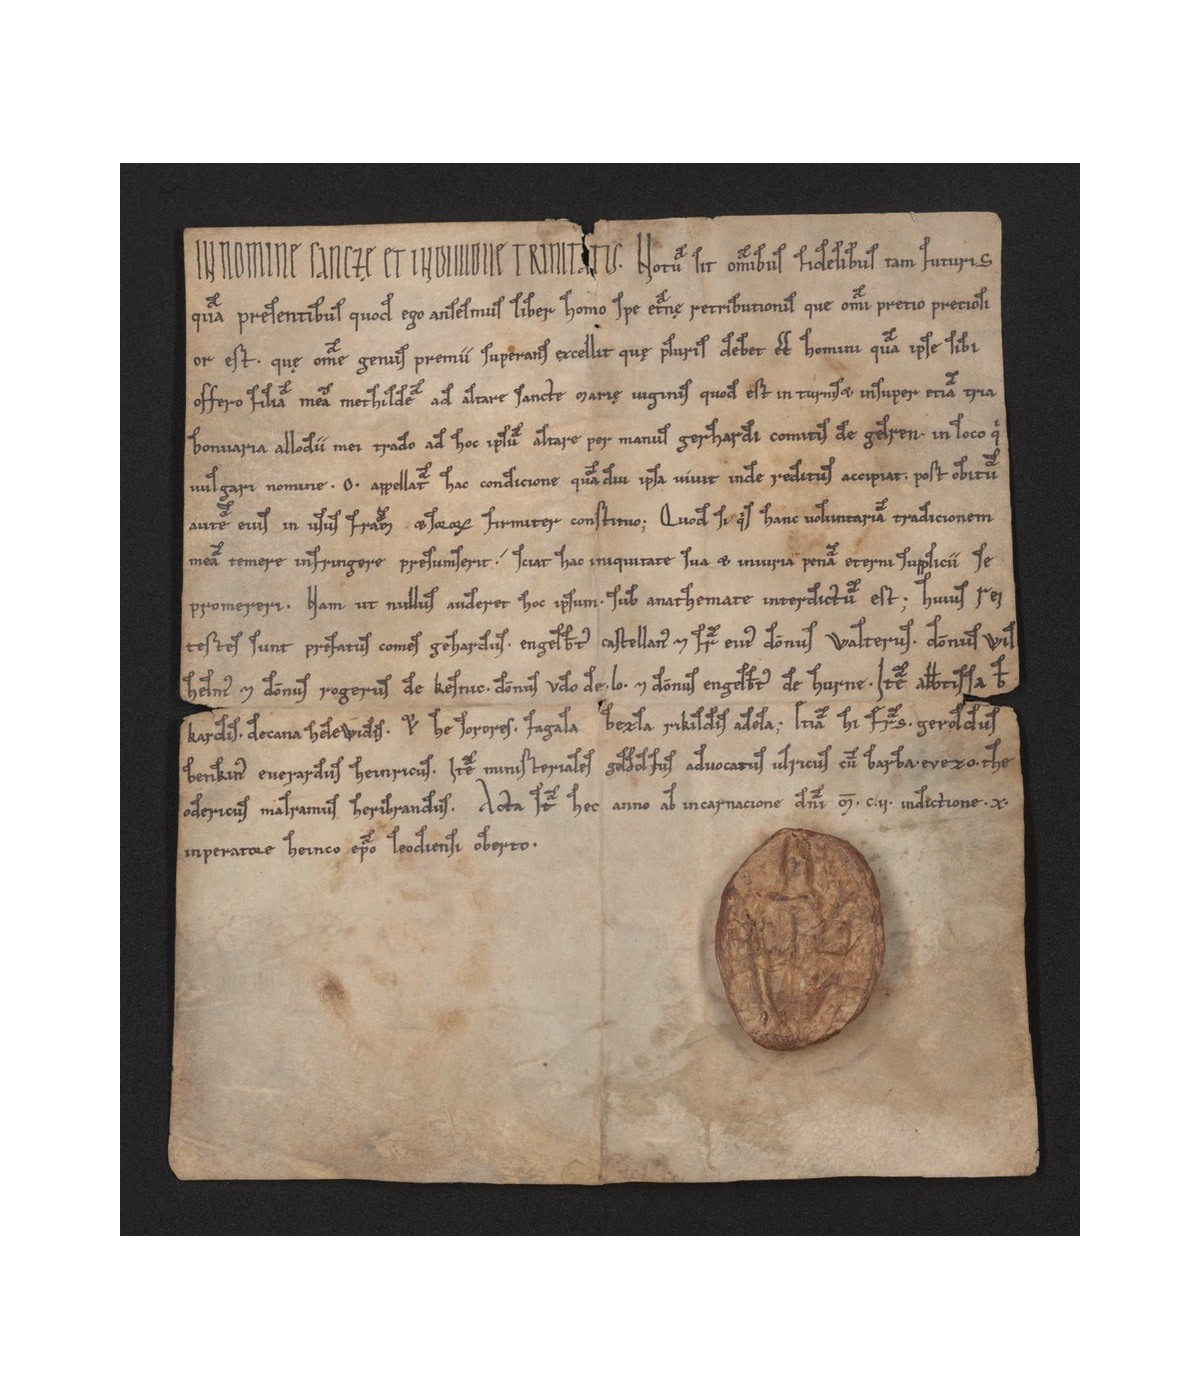 IN NOMINE SANCTĘ ET INDIVIDUE TRINITATIS. Notū sit om̄ibus fidelibus tam futuris
quā presentibus quod ego anselmus liber homo spe et̄nę retributionis que om̄i pretio pretiosi
or est. quę om̄e genus premii superans excellit quę pluris debet eē homini quā ipse sibi
offero filiā meā methildē ad altare sancte marię uirginis quod est in turnis & insuper etiā tria
bonuaria allodii mei trado ad hoc ipsū altare per manus gerhardi comitis de gelren. in loco q̇
uulgari nomine. o. appellat̄ hac condicione quādiu ipsa uiuit inde reditus accipiat. post obitū
autē eius in usus frat̄ꝝ & soroꝝ firmiter constituo; Quod si q̇s hanc uoluntariā tradicionem
meā temere infringere presumserit! sciat hac iniquitate sua & iniuria penā eterni supplicii se
promereri. Nam ut nullus auderet hoc ipsum. sub anathemate interdictū est; huius rei
testes sunt prefatus comes gehardus. engelb̄t᾽ castellan᾽ ⁊ fr̄ eius dōnus walterus. dōnus wil
helm᾽ ⁊ dōnus rogerus de kesnic. dōnus udo de. lo. ⁊ dōnus engelb̄t᾽ de hurne. Itē abb̄tissa b̄
kardis. decana helewidis. & he sorores. fagala bezla rikildis adela; Itiā hi fr̄s. geroldus
benkin᾽ euerardus heinricus. Itē ministeriales godolfus aduocatus ulricus cū barba. euezo. the
odericus malramus heribrandus. Acta st̄ hec anno ab incarnacione dn̄i M̄. c. ii. indictione. x.
inperatore heinco ep̄o leodiensi oberto.